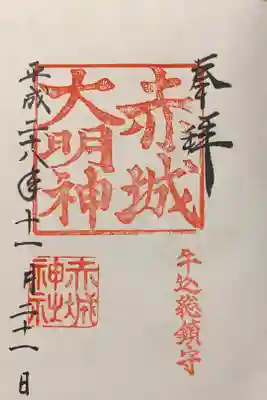 奉拝
牛込総鎮守
赤城
大明神
赤城
神社
平成二八年十一月二十一日